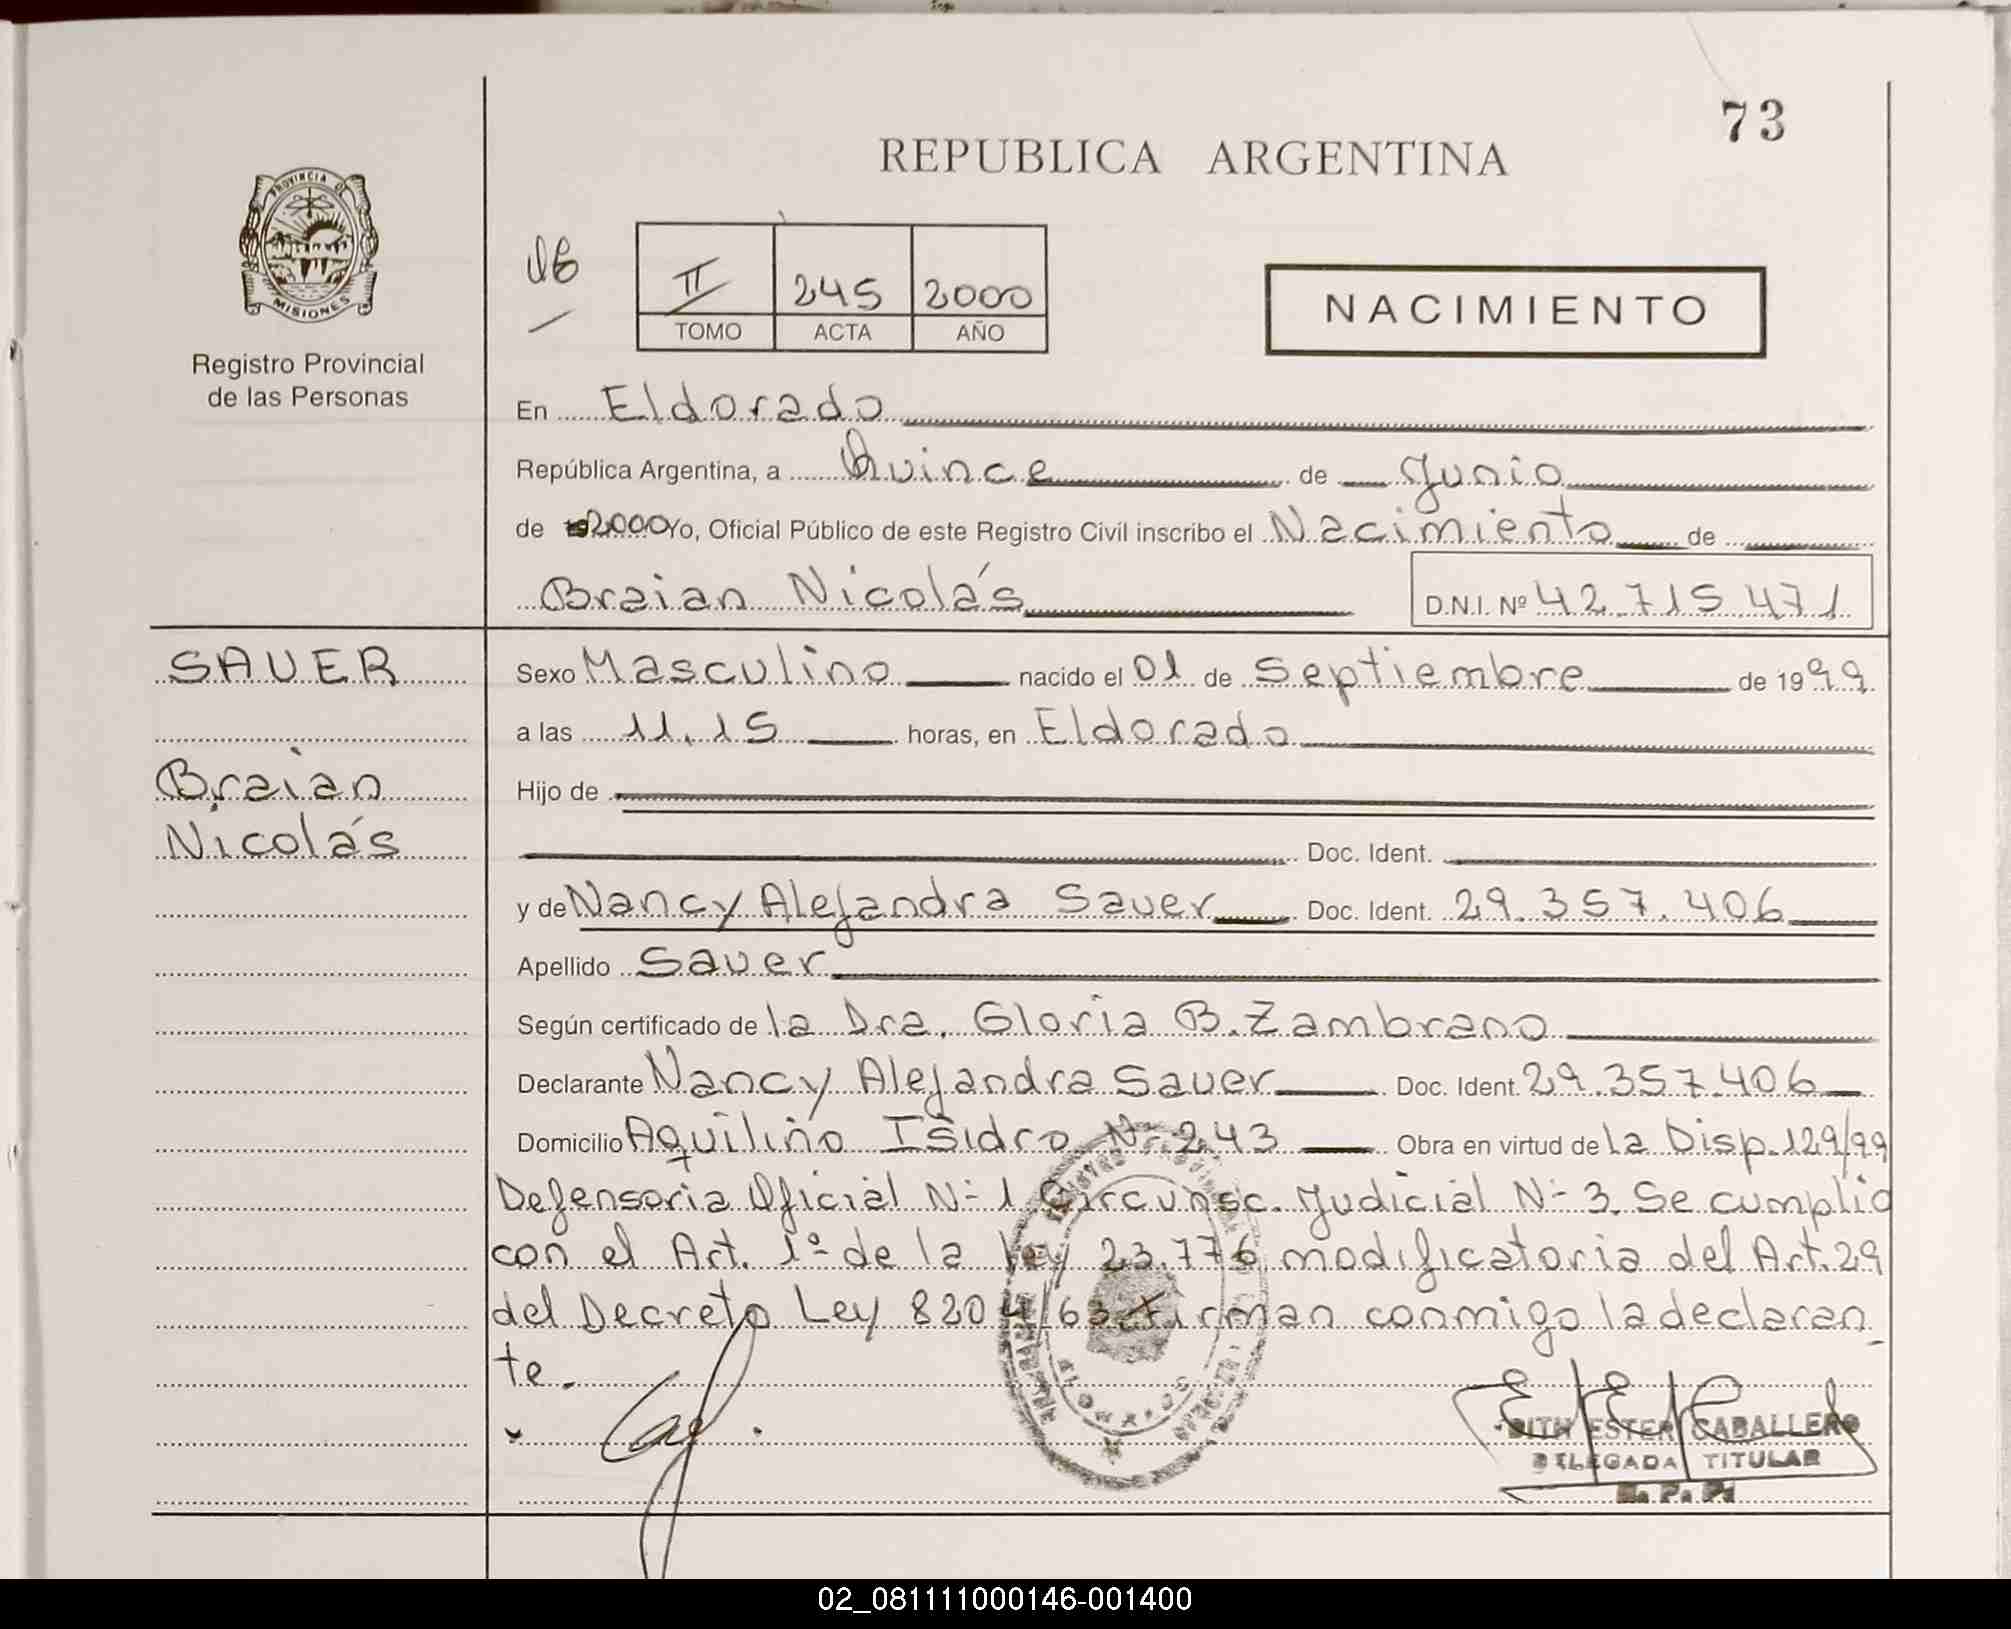 73
REPUBLICA ARGENTINA
PROVINCIA DE
MISIONES
Registro Provincial
de las Personas
II 245 2000
TOMO ACTA AÑO
NACIMIENTO
En Eldorado
República Argentina, a Quince de Junio
de 2000 Yo, Oficial Público de este Registro Civil inscribo el Nacimiento de
Braian Nicolás D.N.I. Nº 42.715.471
SAUER
Braian
Nicolás
Sexo Masculino nacido el 01 de Septiembre de 1999
a las 11,15 horas, en Eldorado
Hijo de
Doc. Ident.
y de Nancy Alejandra Sauer Doc. Ident. 29.357.406
Apellido Sauer
Según certificado de la Dra. Gloria B. Zambrano
Declarante Nancy Alejandra Sauer Doc. Ident. 29.357.406
Domicilio Aquilino Isidro Nº 243 Obra en virtud de la Disp. 129/99
Defensoria Oficial Nº 1 Circunsc. Judicial Nº 3. Se cumplio
con el Art. 1º de la ley 23.776 modificatoria del Art. 29
del Decreto Ley 8204/63 firman conmigo la declaran
te.
EDITH ESTER CABALLERO
DELEGADA TITULAR
R. P. P.
02_081111000146-001400